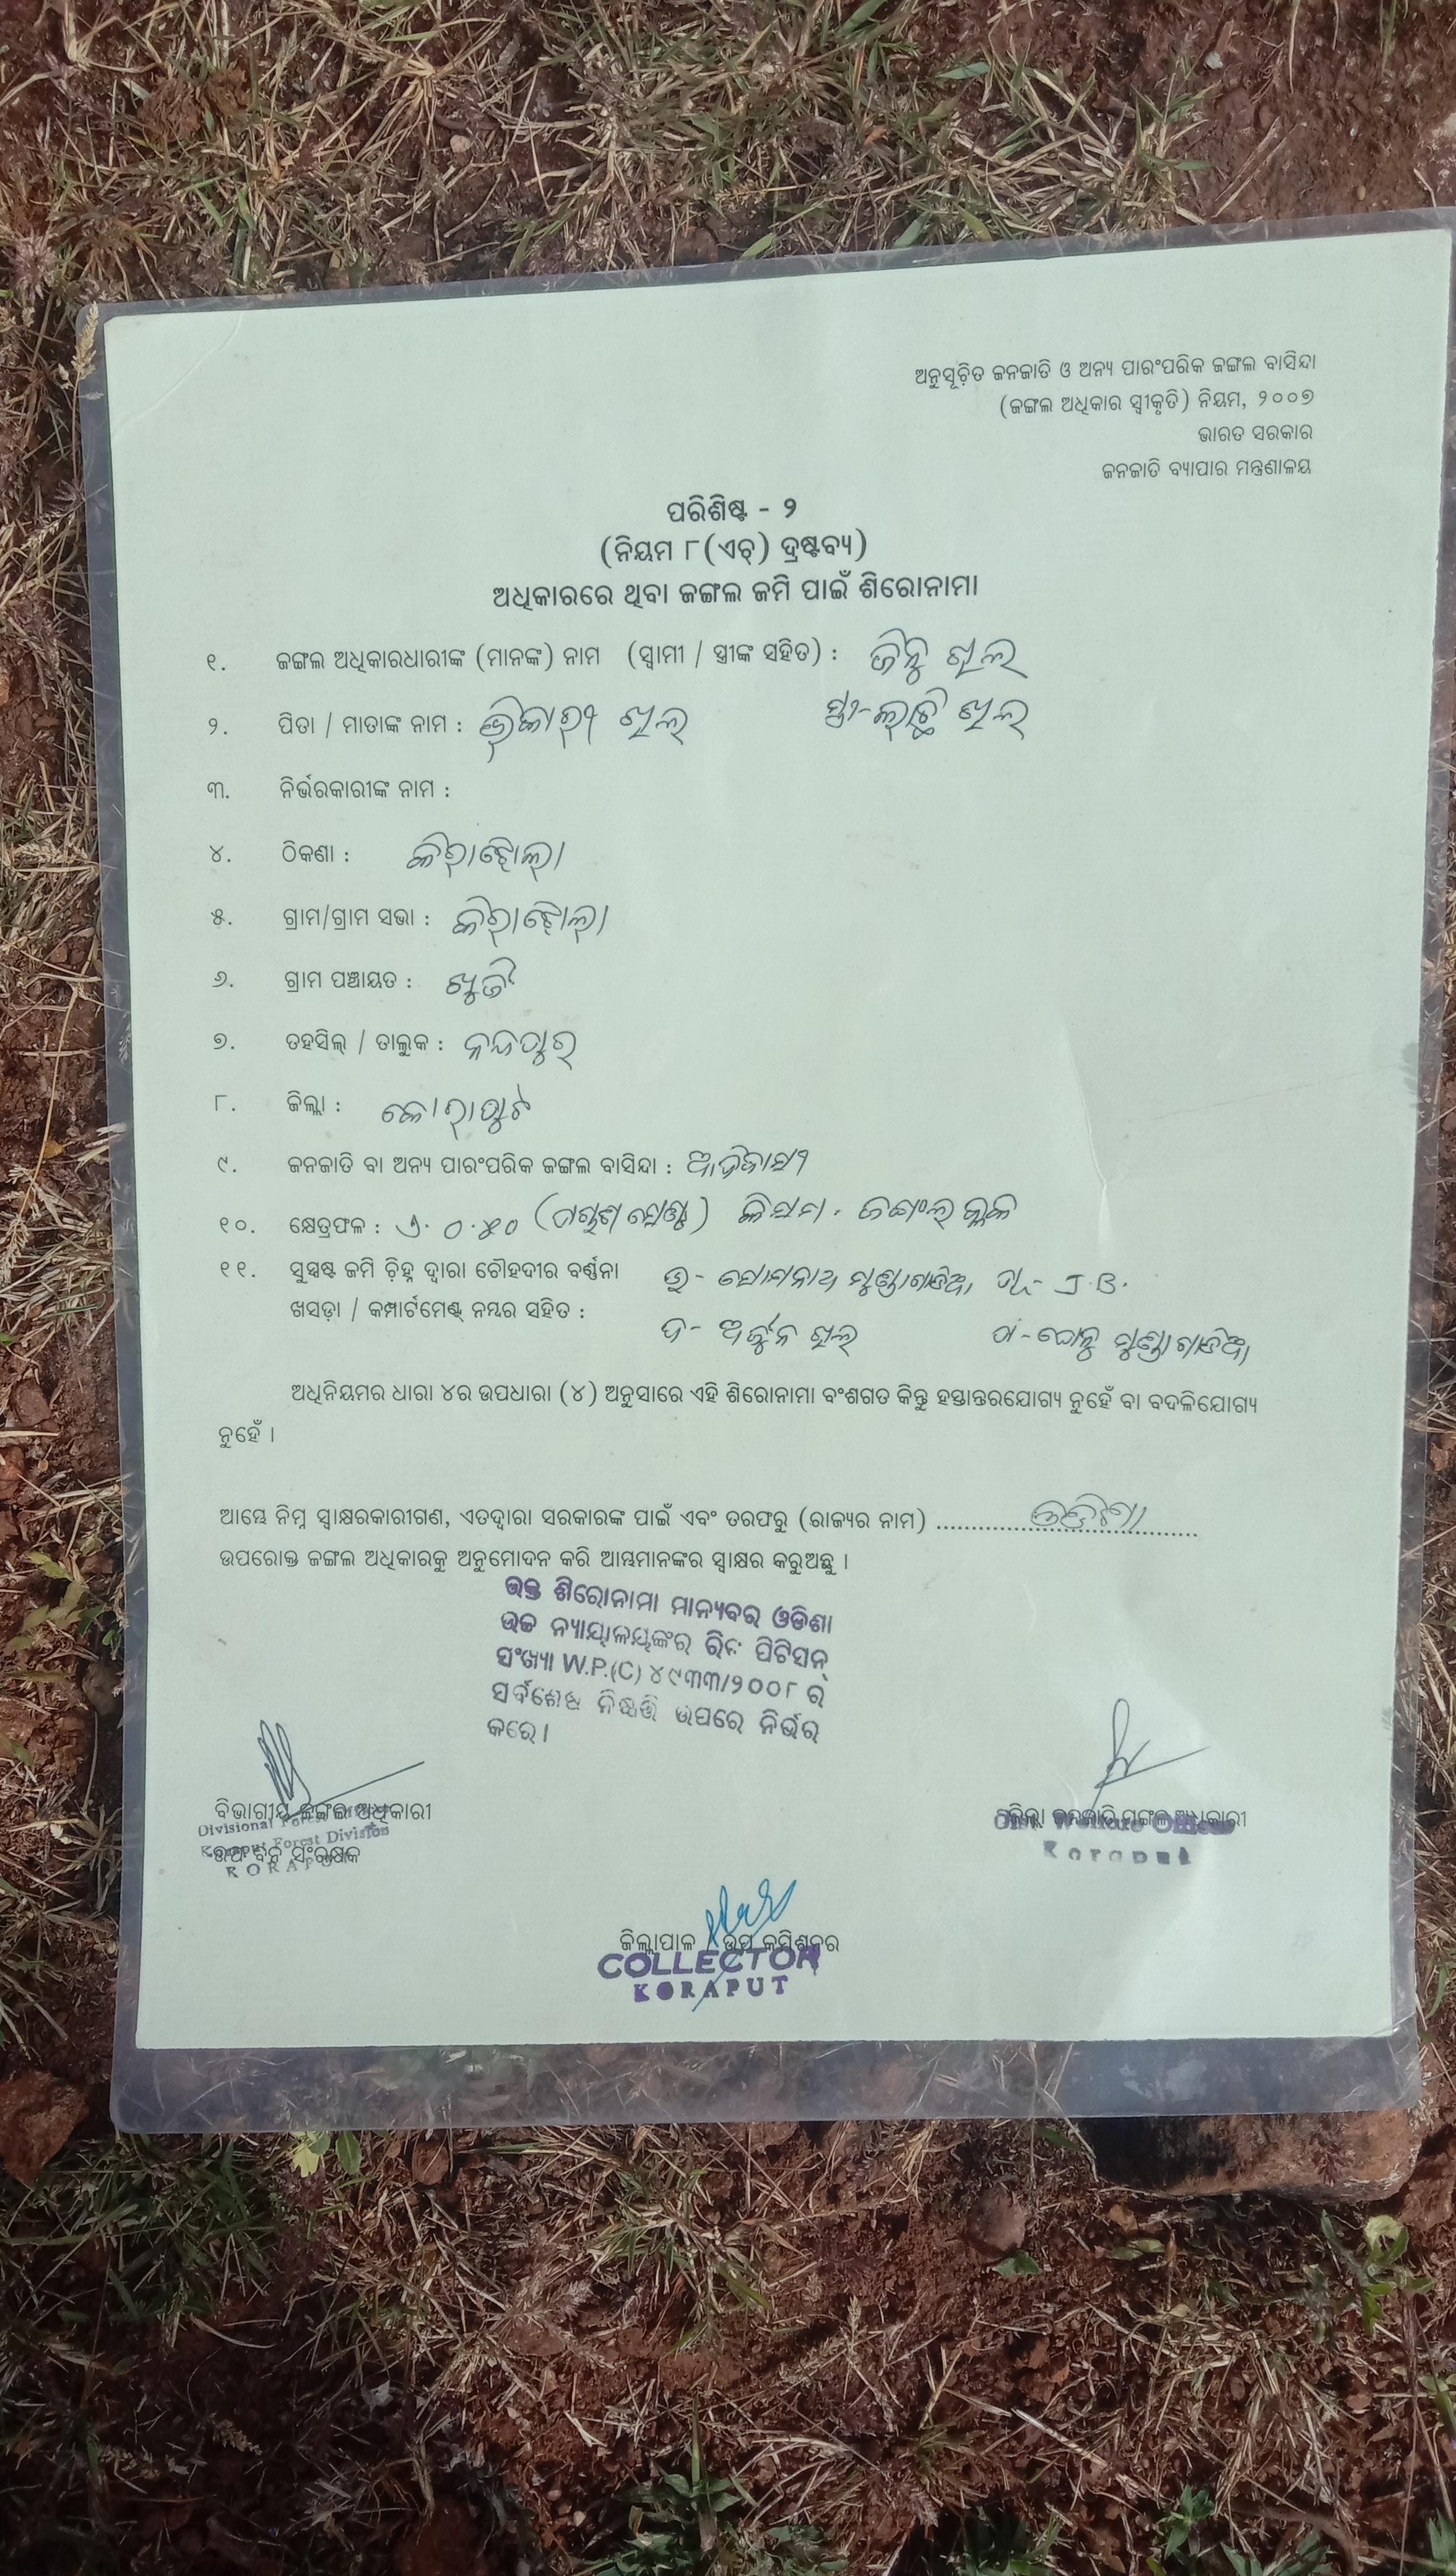 ଅନୁସୂଚିତ ଜନଜାତି ଓ ଅନ୍ୟ ପାରଂପରିକ ଜଙ୍ଗଲ ବାସିନ୍ଦା
(ଜଙ୍ଗଲ ଅଧିକାର ସ୍ୱୀକୃତି) ନିୟମ, ୨୦୦୭
ଭାରତ ସରକାର
ଜନଜାତି ବ୍ୟାପାର ମନ୍ତ୍ରଣାଳୟ
ପରିଶିଷ୍ଟ - ୨
(ନିୟମ ୮(ଏଚ୍) ଦ୍ରଷ୍ଟବ୍ୟ)
ଅଧିକାରରେ ଥିବା ଜଙ୍ଗଲ ଜମି ପାଇଁ ଶିରୋନାମା
୧. ଜଙ୍ଗଲ ଅଧିକାରଧାରୀଙ୍କ (ମାନଙ୍କ) ନାମ (ସ୍ୱାମୀ / ସ୍ତ୍ରୀଙ୍କ ସହିତ) : ଖିଲ
୨. ପିତା / ମାତାଙ୍କ ନାମ : ଖିଲ ଖିଲ
୩. ନିର୍ଭରକାରୀଙ୍କ ନାମ :
୪. ଠିକଣା :
୫. ଗ୍ରାମ/ଗ୍ରାମ ସଭା :
୬. ଗ୍ରାମ ପଞ୍ଚାୟତ : ଖୁଜି
୭. ତହସିଲ୍ / ତାଲୁକ : ନନ୍ଦପୁର
୮. ଜିଲ୍ଲା : କୋରାପୁଟ
୯. ଜନଜାତି ବା ଅନ୍ୟ ପାରଂପରିକ ଜଙ୍ଗଲ ବାସିନ୍ଦା : ଆଦିବାସୀ
୧୦. କ୍ଷେତ୍ରଫଳ : କିସମ
୧୧. ସୁସ୍ପଷ୍ଟ ଜମି ଚିହ୍ନ ଦ୍ୱାରା ଚୌହଦୀର ବର୍ଣ୍ଣନା ଉ- ସୋମନାଥ ମୁଣ୍ଡାଗାଡିଆ J.B.
ଖସଡ଼ା / କମ୍ପାର୍ଟମେଣ୍ଟ୍ ନମ୍ବର ସହିତ : ଦ- ଅର୍ଜୁନ ଖିଲ ମୁଣ୍ଡାଗାଡିଆ
ଅଧିନିୟମର ଧାରା ୪ର ଉପଧାରା (୪) ଅନୁସାରେ ଏହି ଶିରୋନାମା ବଂଶଗତ କିନ୍ତୁ ହସ୍ତାନ୍ତରଯୋଗ୍ୟ ନୁହେଁ ବା ବଦଳିଯୋଗ୍ୟ
ନୁହେଁ ।
ଆମ୍ଭେ ନିମ୍ନ ସ୍ୱାକ୍ଷରକାରୀଗଣ, ଏତଦ୍ୱାରା ସରକାରଙ୍କ ପାଇଁ ଏବଂ ତରଫରୁ (ରାଜ୍ୟର ନାମ) ଓଡିଶା
ଉପରୋକ୍ତ ଜଙ୍ଗଲ ଅଧିକାରକୁ ଅନୁମୋଦନ କରି ଆମ୍ଭମାନଙ୍କର ସ୍ୱାକ୍ଷର କରୁଅଛୁ ।
ଉକ୍ତ ଶିରୋନାମା ମାନ୍ୟବର ଓଡିଶା
ଉଚ୍ଚ ନ୍ୟାୟାଳୟଙ୍କର ରିଟ ପିଟିସନ୍
ସଂଖ୍ୟା W.P.(C) ୪୯୩୩/୨୦୦୮ ର
ସର୍ବଶେଷ ନିଷ୍ପତ୍ତି ଉପରେ ନିର୍ଭର
କରେ ।
ବିଭାଗୀୟ ଜଙ୍ଗଲ ଅଧିକାରୀ
Divisional Forest Officer
Koraput Forest Division
ଉପ ବନ ସଂରକ୍ଷକ
KORAPUT
ଜିଲ୍ଲା ଜନଜାତି ମଙ୍ଗଳ ଅଧିକାରୀ
Koraput
ଜିଲ୍ଲାପାଳ / ଉପ କମିଶନର
COLLECTOR
KORAPUT